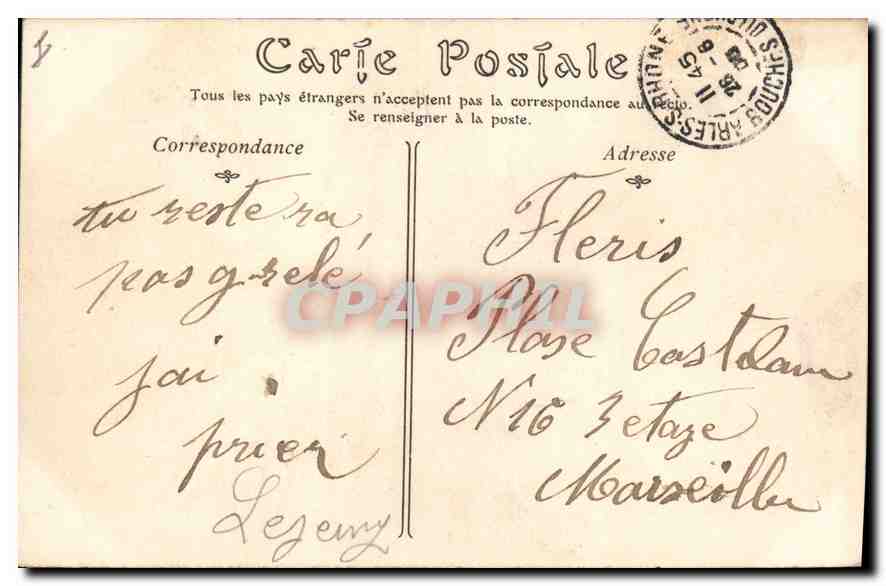 Carte Postale
Tous les pays étrangers n'acceptent pas la correspondance au recto.
Se renseigner à la poste.
Correspondance
tu restera
pas grelé
jai
prier
Adresse
Fleris
Plase Castelane
N 16 3 etaze
Marseille
ARLES-S-RHONE
BOUCHES DU RHONE
11 45
26 - 6
CPAPHIL